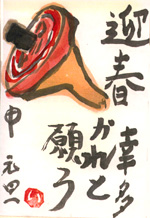 迎春
幸多
かれと
願う
申
元旦